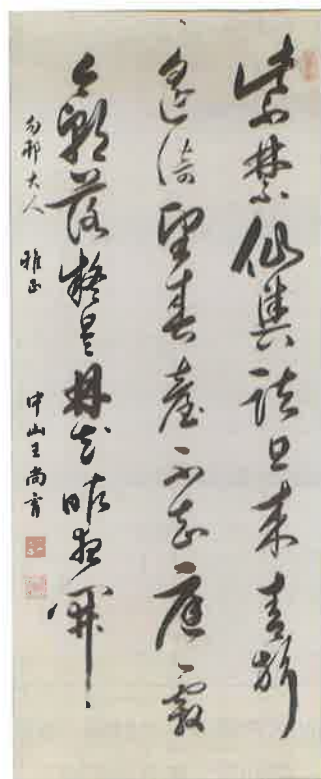 紫禁仙輿詰旦來青旂
遙倚望春臺不知庭霰
今朝落疑是林花昨夜開
大人 雅正 中山王尚育